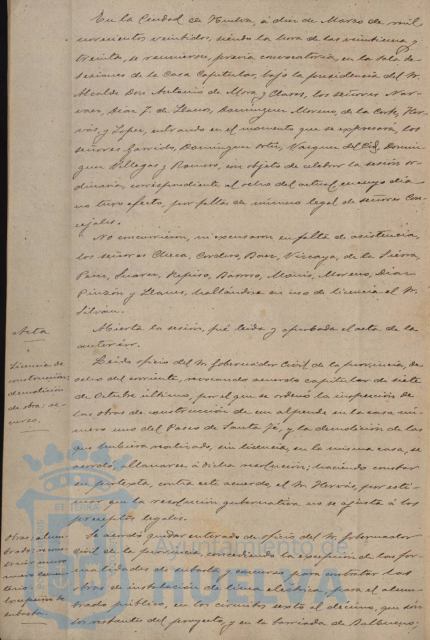 En la Ciudad de Huelva, á diez de Marzo de mil
novecientos veintidos, siendo la hora de las veintiuna y
treinta, se reunieron, previa convocatoria, en la sala de
sesiones de la Casa Capitular, bajo la presidencia del Sr.
Alcalde Don Antonio de Mora y Claros, los señores Nar-
vaez, Diaz F. de Llanos, Dominguez Moreno, de la Corte, Her-
vás y Lopez, entrando en el momento que se expresará, los
señores Garrido, Dominguez Ortiz, Vazquez del Cid, Domin-
guez Villegas y Romero, con objeto de celebrar la sesión or-
dinaria, correspondiente al ocho del actual, en cuyo dia
no tuvo efecto, por falta de número legal de señores Con-
cejales.
No concurrieron, ni excusaron su falta de asistencia,
los señores Checa, Cordero, Baez, Vizcaya, de la Sierra,
Perez, Suarez, Barroso, Moreno, Diaz
Pinzón y Llanos, hallándose en uso de licencia el Sr.
Silván.
Acta
Abierta la sesión, fué leida y aprobada el acta de la
anterior.
Licencia de
construccion,
demolicion
de obra;
Leido oficio del Sr. Gobernador Civil de la provincia, de
ocho del corriente, revocando acuerdo capitular de siete
de Octubre último, por el que se ordenó la inspección de
las obras de construcción de un alpende en la casa nú-
mero uno del Paseo de Santa Fé, y la demolición de las
que hubiera realizado, sin licencia, en la misma casa, se
acordó, allanarse á dicha resolución, haciendo constar
su protesta, contra este acuerdo, el Sr. Hervás, por esti-
mar que la resolución gubernativa no se ajusta á los
preceptos legales.
Obras, alum-
brado,
subasta.
Se acordó quedar enterado de oficio del Sr. Gobernador
Civil de la provincia, concediendo la excepción de las for-
malidades de subasta y concurso para contratar las
obras de instalación de linea eléctrica, para el alum-
brado público, en los circuitos sexto al décimo, que son
los restantes del proyecto, y en la barriada de Balbueno;
Ayuntamiento de
HUELVA